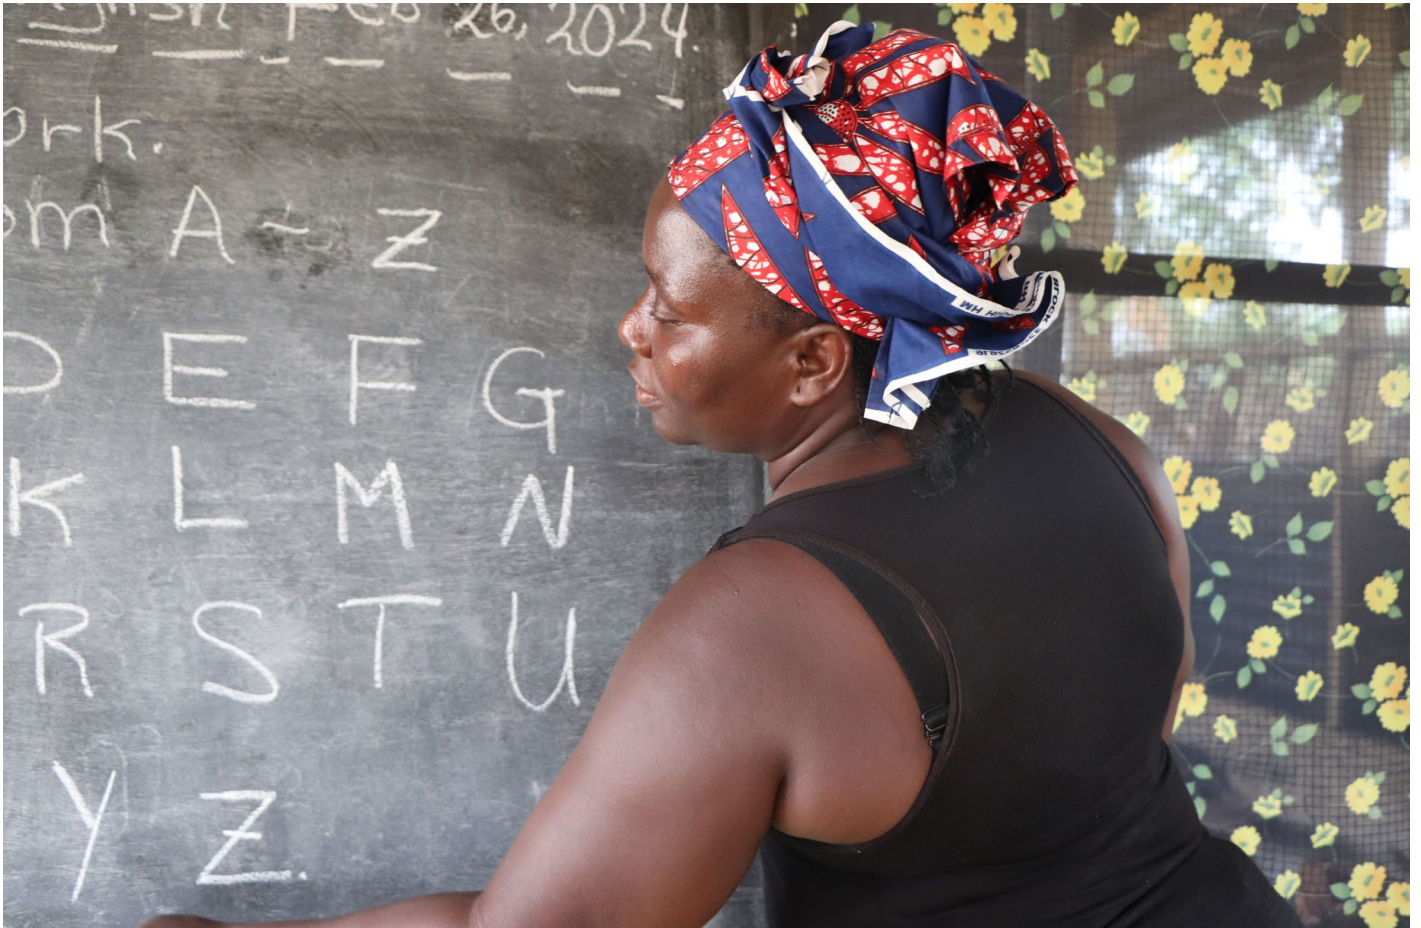 glish Feb 26, 2024.
ork.
om A - Z
D E F G
K L M N
R S T U
Y Z.